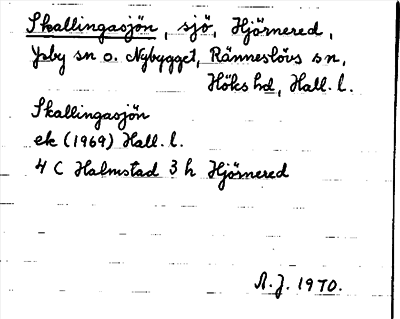 Skallingasjön, sjö, Hjörnered,
Ysby sn o. Nybygget, Ränneslövs sn,
Höks hd, Hall. l.
Skallingasjön
ek (1969) Hall. l.
4 C Halmstad 3 h Hjörnered
A. J. 1970.